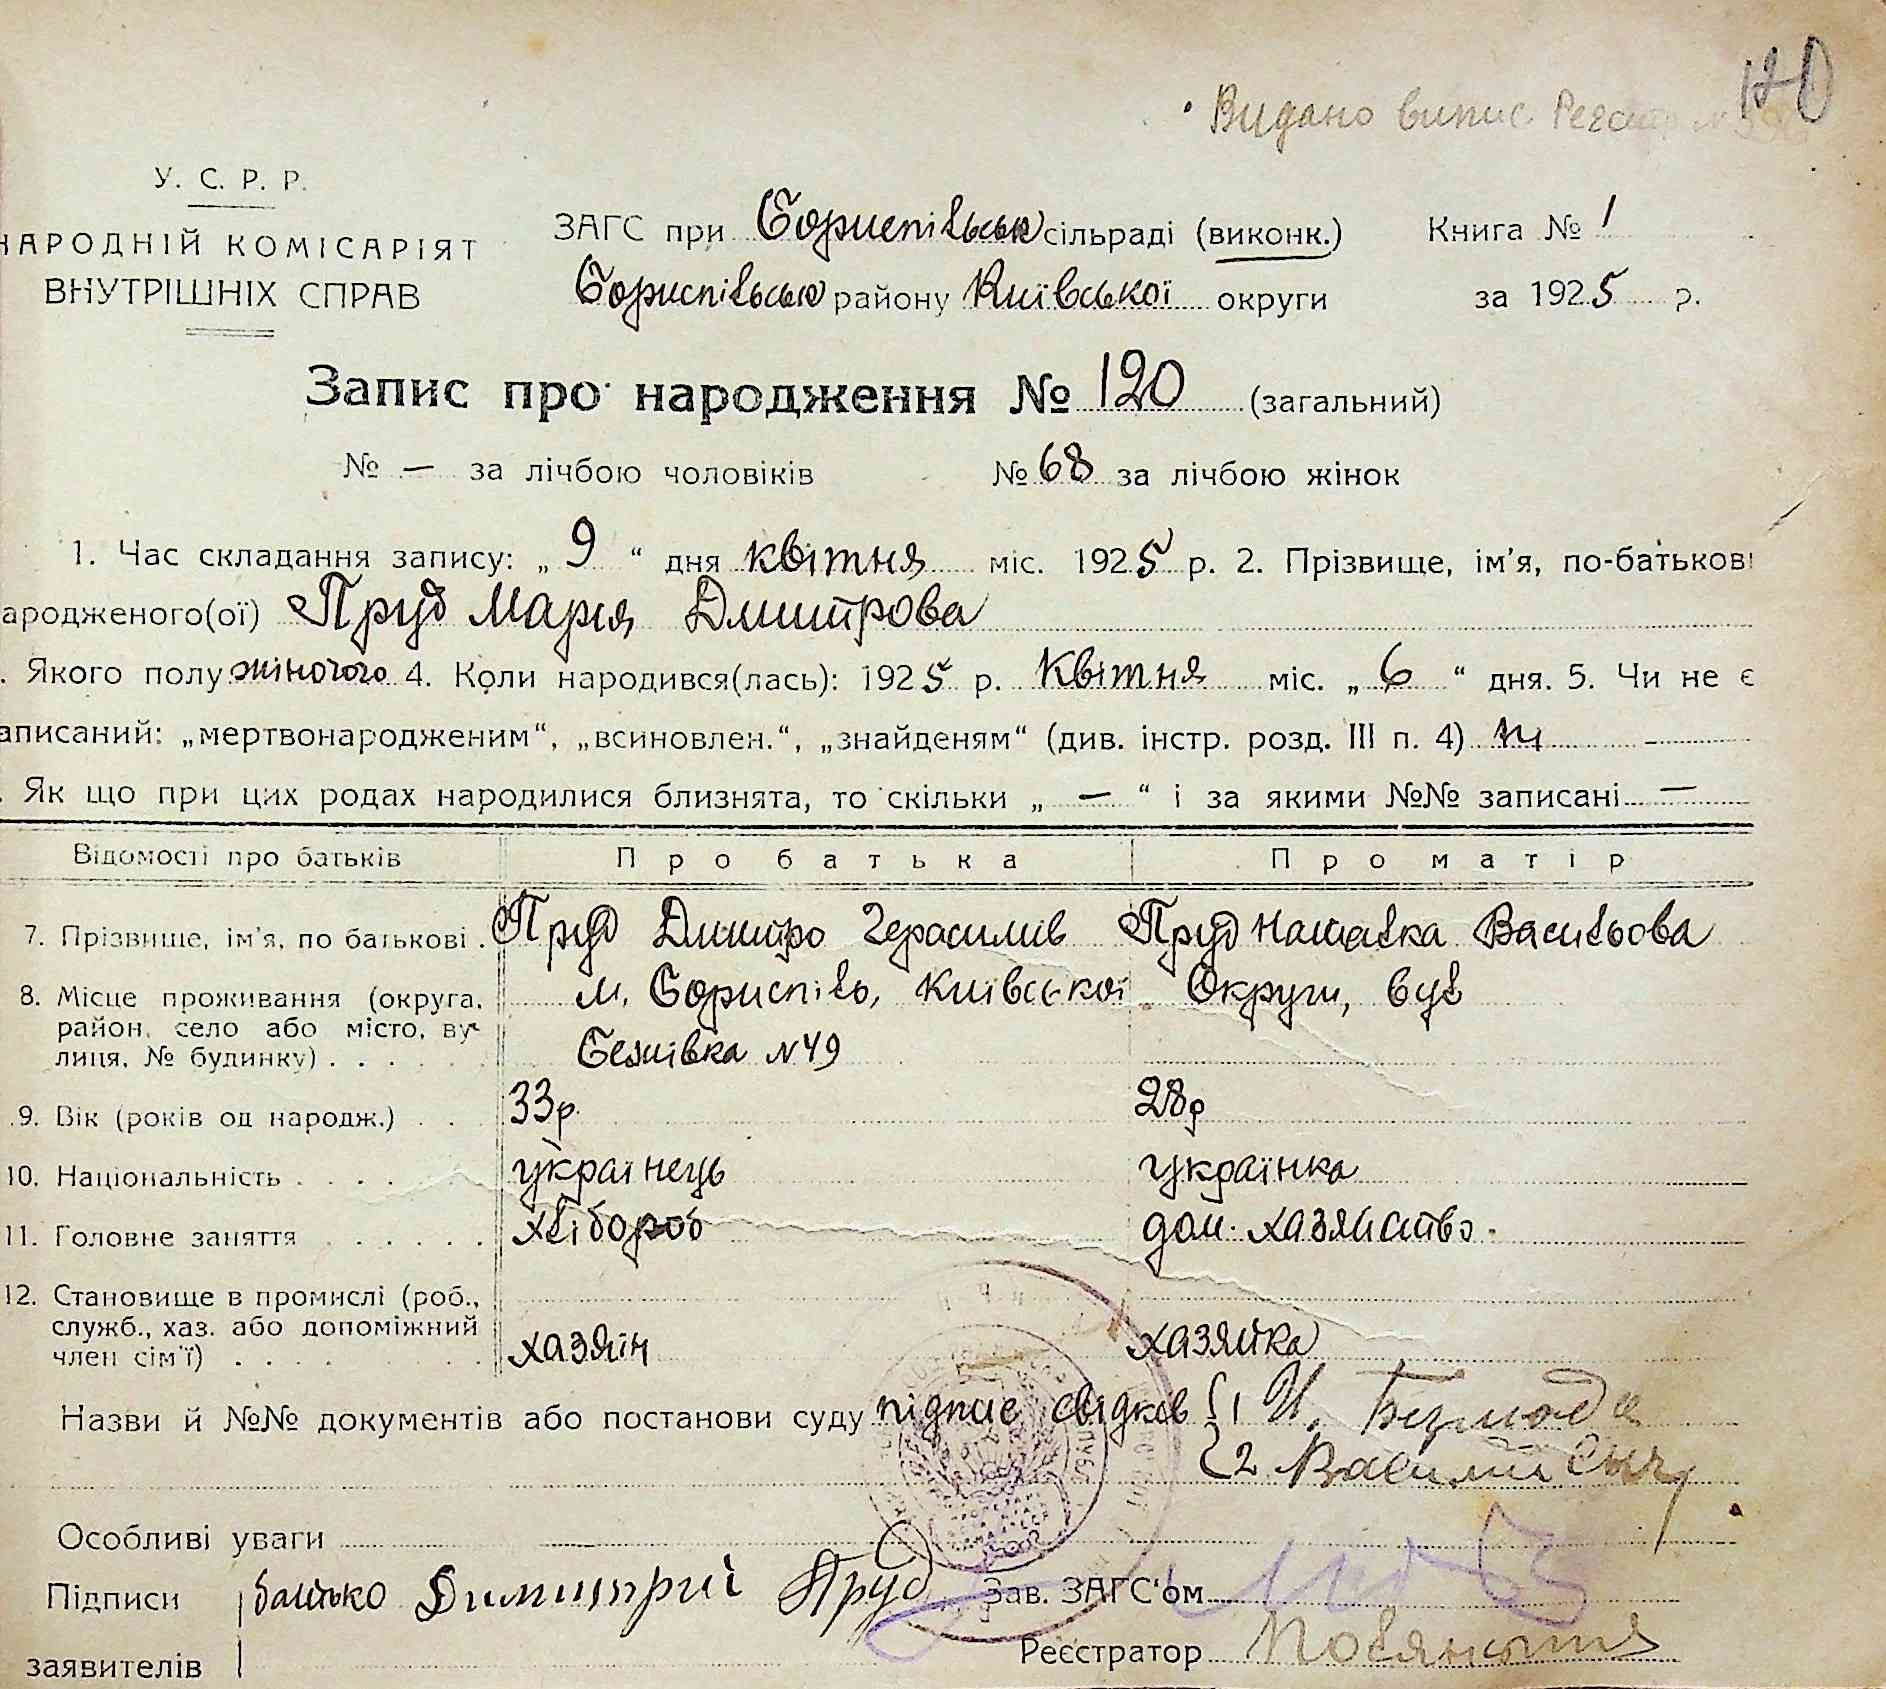 120
Видано випис
У. С. Р. Р.
НАРОДНІЙ КОМІСАРІЯТ
ВНУТРІШНІХ СПРАВ
ЗАГС при Бориспільськ сільраді (виконк.) Книга № 1
Бориспільськ району Київської округи за 1925 р.
Запис про народження № 120 (загальний)
№ — за лічбою чоловіків № 68 за лічбою жінок
1. Час складання запису: „ 9 “ дня квітня міс. 1925 р. 2. Прізвище, ім'я, по-батькові
ародженого(ої) Пруд Марія Дмитрова
. Якого полу жіночого 4. Коли народився(лась): 1925 р. Квітня міс. „ 6 “ дня. 5. Чи не є
аписаний: „мертвонародженим“, „всиновлен.“, „знайденям“ (див. інстр. розд. III п. 4) ні
. Як що при цих родах народилися близнята, то скільки „ — “ і за якими №№ записані —
Відомості про батьків Про батька Про матір
7. Прізвище, ім'я, по батькові . Пруд Дмитро Герасимів Пруд Наталка Васильова
8. Місце проживання (округа, м. Бориспіль, Київської Округи, вул
район, село або місто, ву-
лиця, № будинку) . . . . . . №49
9. Вік (років од народж.) . . . 33р. 28р
10. Національність . . . . українець українка
11. Головне заняття . . . . . . хлібороб дом. хазяйство.
12. Становище в промислі (роб.,
служб., хаз. або допоміжний
член сім'ї) . . . . хазяін хазяйка
Назви й №№ документів або постанови суду підпис свідків 1 И.
2 Василий Сыч
Особливі уваги
Підписи батько Димитрий Пруд Зав. ЗАГС'ом
заявителів Реєстратор